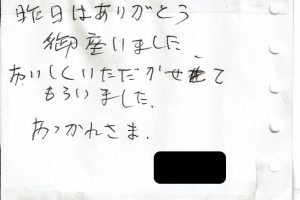 昨日はありがとう
御座いました
おいしくいただかせて
もらいました.
おつかれさま.